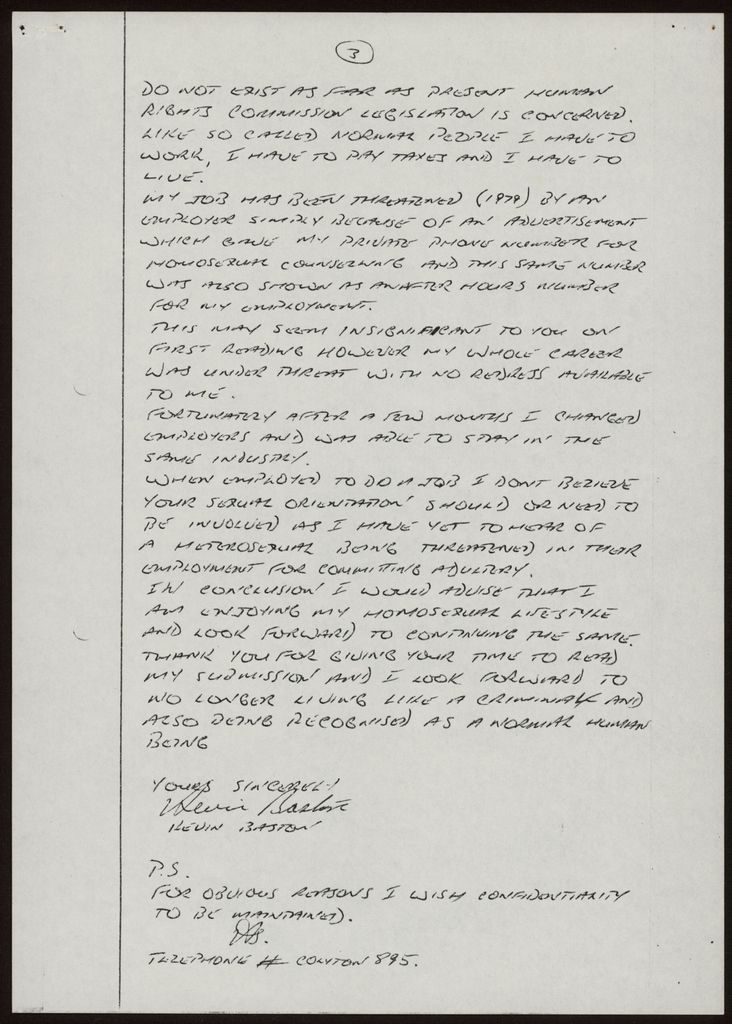 3
DO NOT EXIST AS FAR AS PRESENT HUMAN
RIGHTS COMMISSION LEGISLATION IS CONCERNED.
LIKE SO CALLED NORMAL PEOPLE I HAVE TO
WORK, I HAVE TO PAY TAXES AND I HAVE TO
LIVE.
MY JOB HAS BEEN THREATENED (1979) BY AN
EMPLOYER SIMPLY BECAUSE OF AN ADVERTISEMENT
WHICH GAVE MY PRIVATE PHONE NUMBER FOR
HOMOSEXUAL COUNSELLING AND THIS SAME NUMBER
WAS ALSO SHOWN AS AN AFTER HOURS NUMBER
FOR MY EMPLOYMENT.
THIS MAY SEEM INSIGNIFICANT TO YOU ON
FIRST READING HOWEVER MY WHOLE CAREER
WAS UNDER THREAT WITH NO REDRESS AVAILABLE
TO ME.
FORTUNATELY AFTER A FEW MONTHS I CHANGED
EMPLOYERS AND WAS ABLE TO STAY IN THE
SAME INDUSTRY.
WHEN EMPLOYED TO DO A JOB I DONT BELIEVE
YOUR SEXUAL ORIENTATION SHOULD OR NEED TO
BE INVOLVED AS I HAVE YET TO HEAR OF
A HETEROSEXUAL BEING THREATENED IN THEIR
EMPLOYMENT FOR COMMITTING ADULTERY.
IN CONCLUSION I WOULD ADVISE THAT I
AM ENJOYING MY HOMOSEXUAL LIFESTYLE
AND LOOK FORWARD TO CONTINUING THE SAME.
THANK YOU FOR GIVING YOUR TIME TO READ
MY SUBMISSION AND I LOOK FORWARD TO
NO LONGER LIVING LIKE A CRIMINAL AND
ALSO BEING RECOGNISED AS A NORMAL HUMAN
BEING
YOURS SINCERELY
Kevin Baston
KEVIN BASTON
P.S.
FOR OBVIOUS REASONS I WISH CONFIDENTIALITY
TO BE MAINTAINED.
TELEPHONE # COLYTON 895.